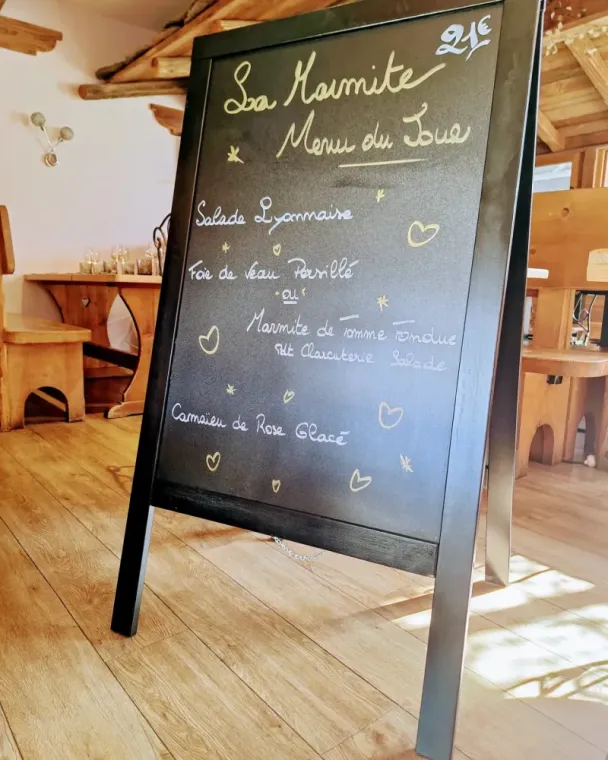 21€
La Marmite
Menu du Jour
Salade Lyonnaise
Foie de Veau Persillé
ou
Marmite de Tomme Fondue
Pdt Charcuterie Salade
Camaïeu de Rose Glacé